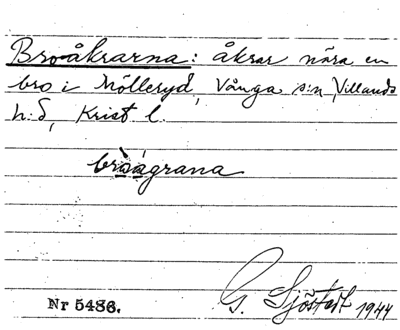 Broåkrarna: åkrar nära en
bro i Mölleryd, Vånga s:n, Villands
h:d, Krist l.
broágrana
Nr 5486. G. Sjöstedt 1944